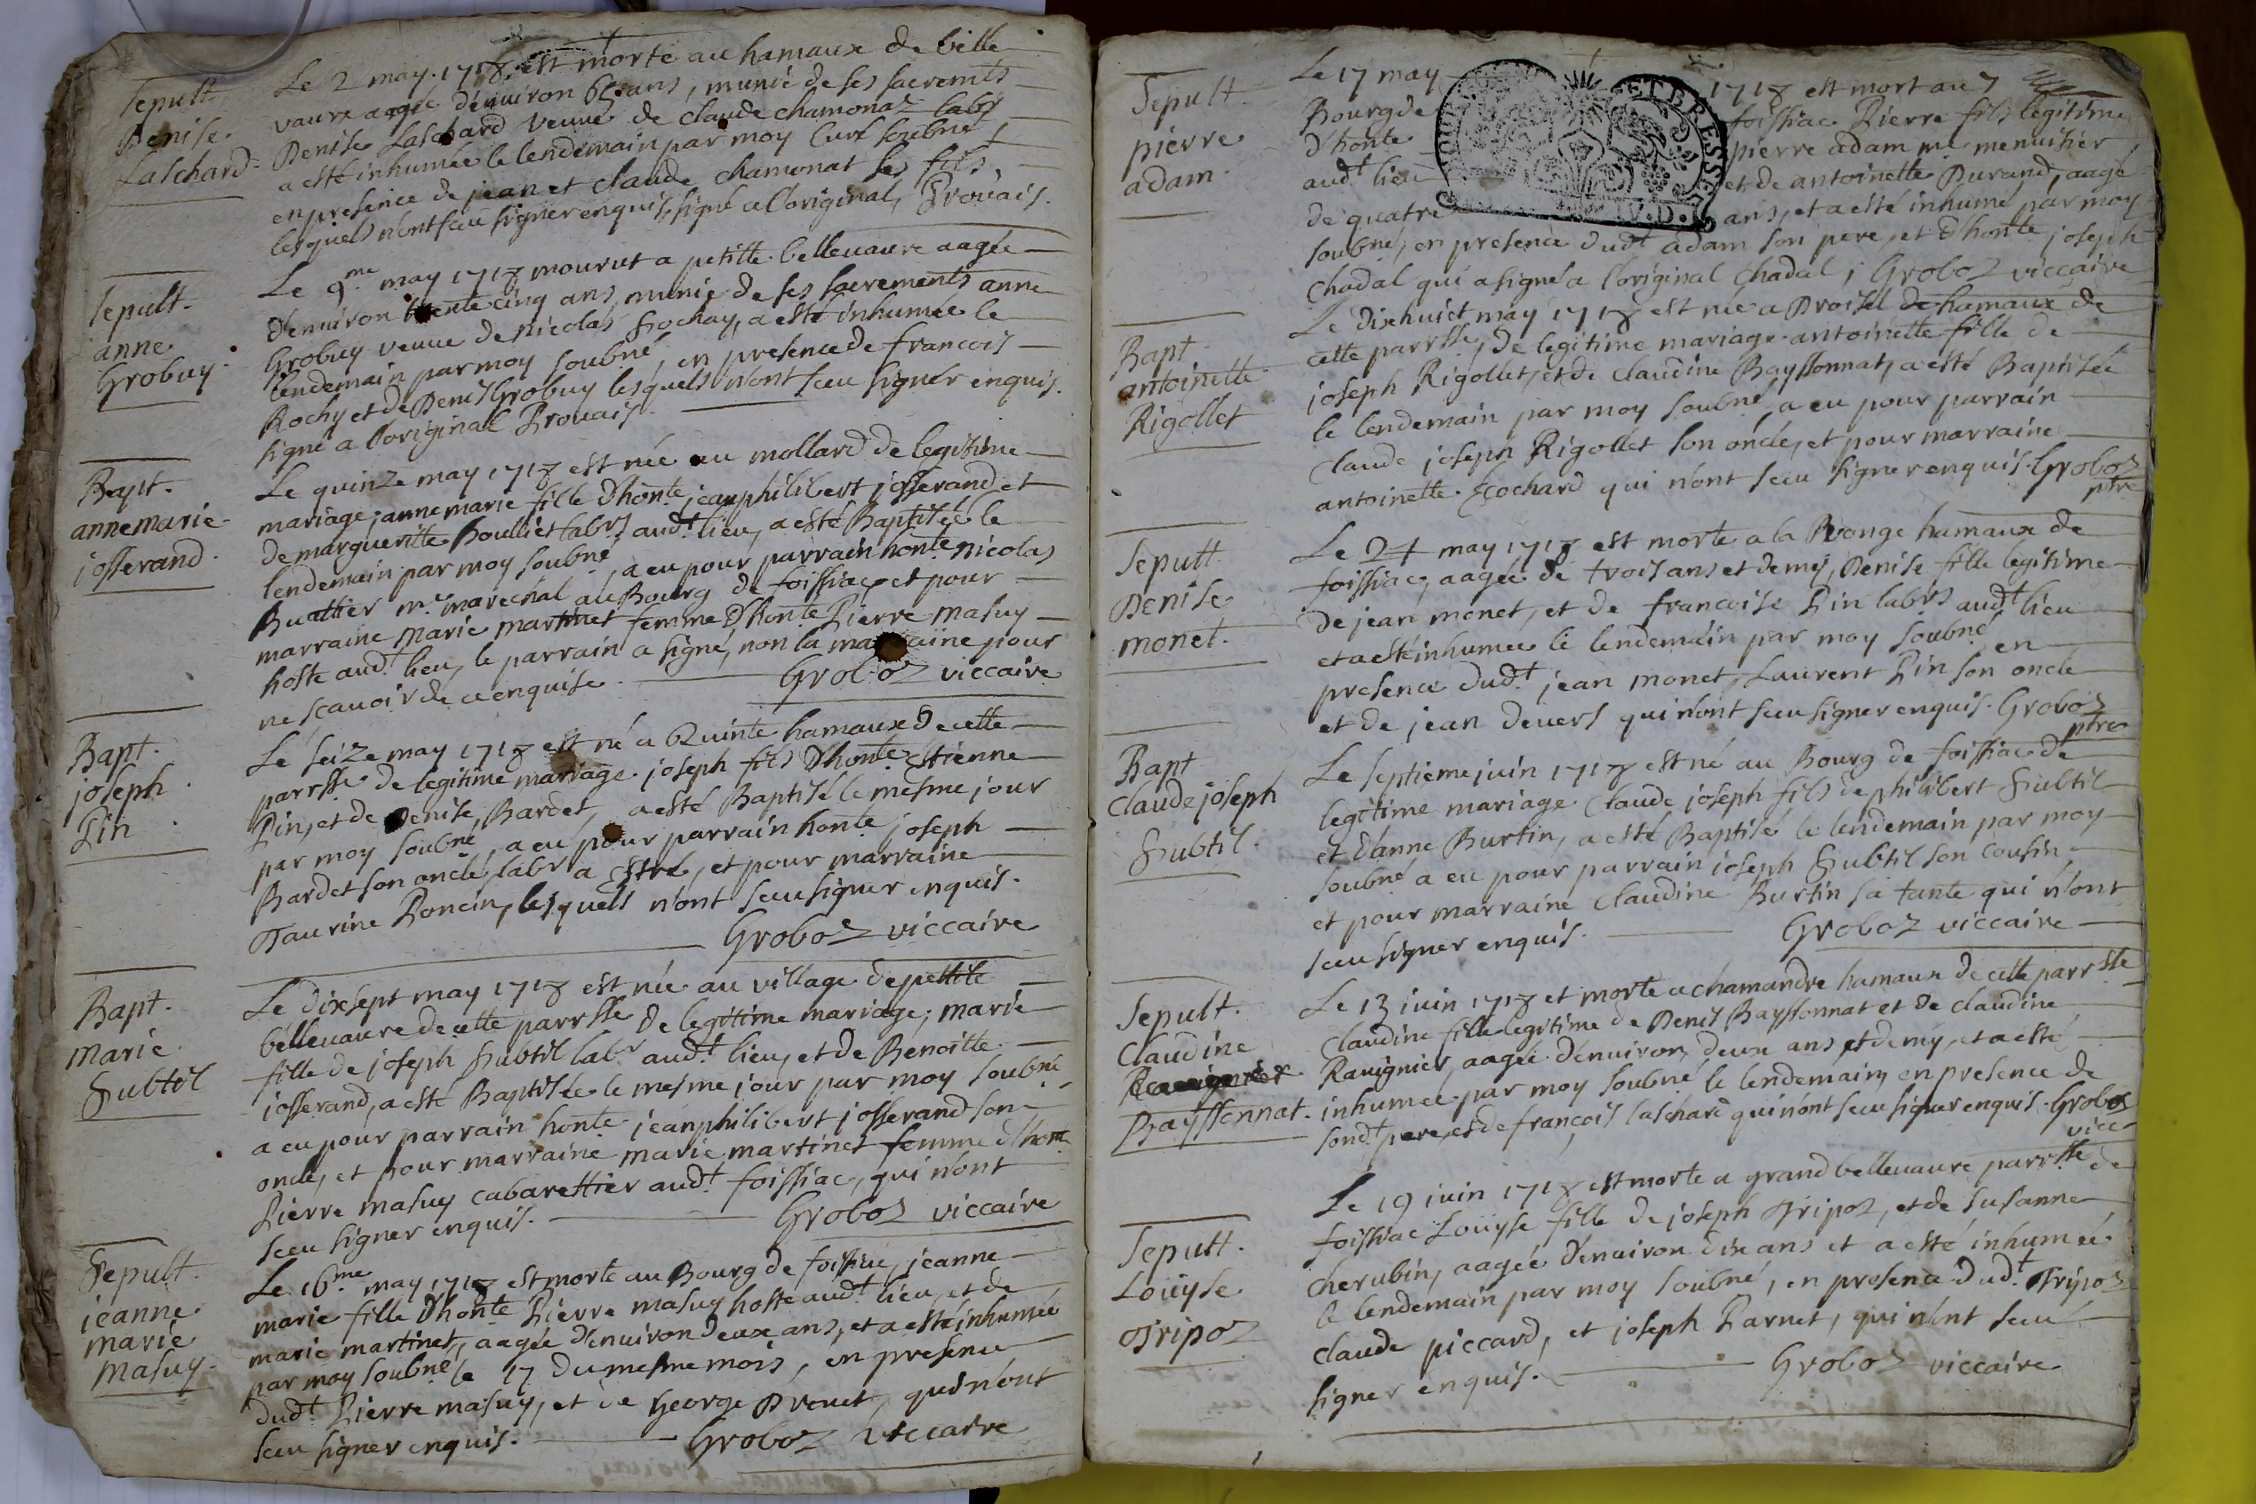 Sepult.
Denise
Laschard.
Le 2 may 1718 est morte au hamaux de belle
vaure aagée d'enuiron 65 ans, munie de ses sacremts
Denise Laschard veuue de claude chamonat labr
a esté inhumée le lendemain par moy Curé soubné,
en presence de jean et claude chamonat ses fils
lesquels n'ont sceu signer enquis, signé a l'original, Drouais.
Sepult.
anne
Grobuy.
Le 9.me may 1718 mourut a petitte belleuaure aagée
d'enuiron trente cinq ans, munie de ses sacrements anne
Grobuy veuue de nicolas Cochay, a esté inhumée le
lendemain par moy soubné, en presence de francois
Rochy et de Denis Grobuy lesquels n'ont sceu signer enquis.
signé a l'original Drouais.
Bapt.
anne marie
josserand.
Le quinze may 1718 est née au mollard de legitime
mariage, anne marie fille d'honte jean philibert josserand et
de margueritte Boulliet labrs audt. lieu, a esté Baptisée le
lendemain par moy soubné, a eu pour parrain honte nicolas
Buattier me. marechal au Bourg de foissiac, et pour
marraine Marie martinet femme d'honte Pierre masuy
hoste audt. lieu, le parrain a signé, non la marraine pour
ne scauoir de ce enquise. Groboz viccaire
Bapt.
joseph
Pin
Le seize may 1718 est né a Quinte hamaux de cette
parrsse de legitime mariage joseph fils d'honte Etienne
Pin, et de Denise Bardet, a esté Baptisé le mesme jour
par moy soubné, a eu pour parrain honte joseph
Bardet son oncle, labr a Estre, et pour marraine
Taurine Poncin, lesquels n'ont sceu signer enquis.
Groboz viccaire
Bapt.
Marie
Subtil
Le dixsept may 1718 est née au village de pettite
belleuaure de cette parrsse de legitime mariage, marie
fille de joseph Subtil labr audt. lieu, et de Benoitte
josserand, a esté Baptisée le mesme jour par moy soubné
a eu pour parrain honte jean philibert josserand son
oncle, et pour marraine marie martinet femme d'honte
Pierre masuy cabarettier audt. foissiac, qui n'ont
sceu signer enquis. Groboz viccaire
Sepult.
jeanne
marie
masuy.
Le 16.me may 1718 est morte au Bourg de foissiac, jeanne
marie fille d'honte Pierre masuy hoste audt lieu, et de
marie martinet, aagée d'enuiron deux ans, et a esté inhumée
par moy soubné le 17 du mesme mois, en presence
dudt. Pierre masuy, et de George Drouet, qui n'ont
sceu signer enquis. Groboz viccaire
Sepult.
pierre
adam.
Le 17 may 1718 est mort au
Bourg de foissiac Pierre fils legitime
d'honte pierre adam me menuisier
audt lieu et de antoinette Durand, aagé
de quatre ans, et a esté inhumé par moy
soubné, en presence dudt adam son pere, et d'honte joseph
Chadal qui a signé a l'original Chadal, Groboz viccaire
Bapt.
antoinette
Rigollet
Le dixhuict may 1718 est née a Droisel de hamaux de
cette parrsse, de legitime mariage antoinette fille de
joseph Rigollet, et de Claudine Bayssonnat, a esté Baptisée
le lendemain par moy soubné, a eu pour parrain
Claude joseph Rigollet son oncle, et pour marraine
antoinette Cochard qui n'ont sceu signer enquis. Groboz
ptre
Sepult.
Denise
monet.
Le 24 may 1718 est morte a la Ronge hamaux de
foissiac, aagée de trois ans et demy, Denise fille legitime
de jean monet, et de francoise Pin labrs audt lieu
et a esté inhumée le lendemain par moy soubné en
presence dudt. jean monet, Laurent Pin son oncle
et de jean deuers qui n'ont sceu signer enquis. Groboz
ptre
Bapt
Claude joseph
Subtil.
Le septieme juin 1718 est né au Bourg de foissiac de
legitime mariage Claude joseph fils de philibert Subtil
et d'anne Burtin, a esté Baptisé le lendemain par moy
soubné a eu pour parrain joseph Subtil son cousin
et pour marraine Claudine Burtin sa tante qui n'ont
sceu signer enquis. Groboz viccaire
Sepult.
Claudine
Bayssonnat.
Le 13 juin 1718 et morte a chamandre hamaux de cette parrsse
Claudine fille legitime de Denis Bayssonnat et de claudine
Rauignier, aagée d'enuiron deux ans et demy, et a esté
inhumée par moy soubné le lendemain en presence de
sondt pere, et de françois laschard qui n'ont sceu signer enquis. Groboz
vicc
Sepult.
Louyse
Tripoz
Le 19 juin 1718 est morte a grand belleuaure parrsse de
foissiac Louyse fille de joseph Tripoz, et de Susanne
cherubin, aagée d'enuiron dix ans et a esté inhumée
le lendemain par moy soubné, en presence dudt. Tripoz
claude piccard, et joseph Parnet, qui n'ont sceu
signer enquis. Groboz viccaire